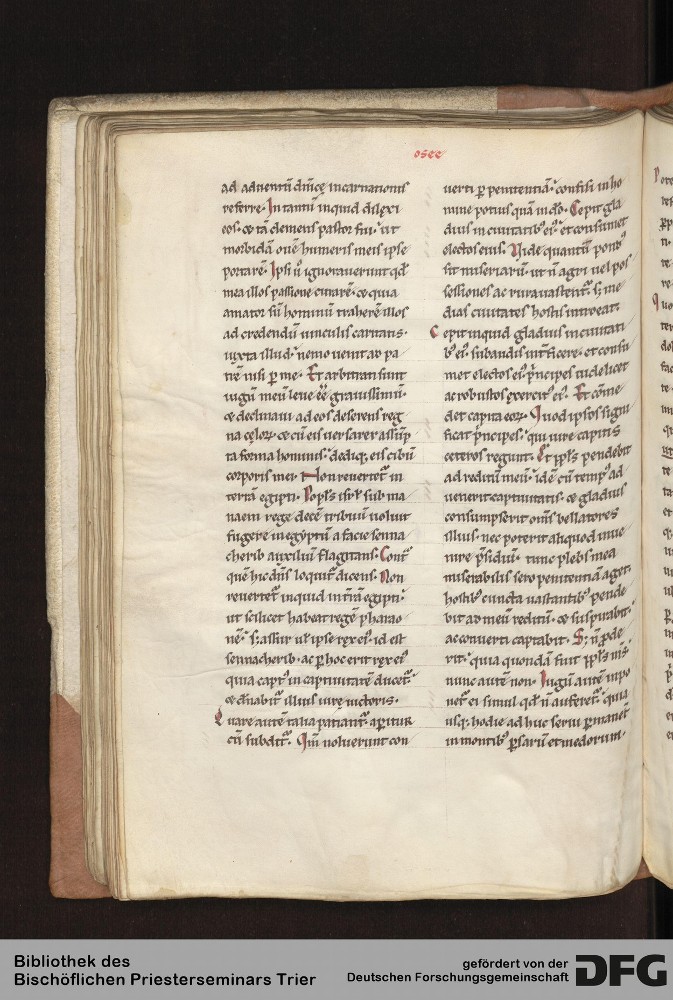 osee
ad aduentū dn̄icę incarnationis
referre. In tantū inquid dilexi
eos. et tā clemens pastor fui. ut
morbidā ouē humeris meis ipse
portarē. Ipsi u͛ ignorauerunt qd̄
mea illos passione curarē. et quia
amator sū hominū traherē illos
ad credendū uinculis caritatis.
iuxta illud. nemo uenit ad pa
trē nisi ꝑ me. Et arbitrati sunt
iugū meū leue eē grauissimū.
et declinaui ad eos deserens reg
na cęloꝝ. et cū eis uersarer assūp
ta forma hominis. dediq; eis cibū
corporis mei. Non reuertet᷑ in
terrā egipti. Popl̄s isrl̄ sub ma
naem rege decē tribuū uoluit
fugere in egyptū a facie senna
cherib auxiliū flagitans. Cont᷑
quē hic dn̄s loquit᷑ dicens. Non
reuertet᷑ inquid in trā̄ egipti.
ut scilicet habeat regē pharao
nē. s; assur uł ipse rex ei᷒. id est
sennacherib. ac ꝑ hoc erit rex ei᷒
quia capt᷒ in captiuitatē ducet᷑.
et dn̄abit᷑ illius iure uictoris.
Quare autē talia patiant᷑. aperitur
cū subdit᷑. Qm̄ noluerunt con
uerti ꝑ penitentiā. confisi in ho
mine potius quā in dō. Cepit gla
dius in ciuitatib᷒ ei᷒. et consumet
electos eius. Vide quantū pond᷒
sit miseriarū. ut n̄ agri uel pos
sessiones ac rura uastent᷑. s; me
dias ciuitates hostis introeat.
Cepit inquid gladius in ciuitati
b᷒ ei᷒. subaudis int᷑ficere. et consu
met electos ei᷒. p̄ncipes uidelicet
ac robustos exercit᷒ ei᷒. Et cōme
det capita eoꝝ. Quod ipsos signi
ficat p̄ncipes. qui iure capitis
ceteros regunt. Et ppl̄s pendebit
ad reditū meū. idē cū temp᷒ ad
uenerit captiuitatis. et gladius
consumpserit om̄s bellatores
illius. nec poterit aliquod inue
nire p̄sidiū. tunc plebs mea
miserabilis sero penitentiā aget.
hostib᷒ cuncta uastantib᷒ pende
bit ad meū reditū. et suspirabit.
ac conuerti captabit. S; n̄ ꝓde
rit. quia quondā fuit ppl̄s m̄s.
nunc autē non. Iugū autē inpo
net᷑ ei simul qd̄ n̄ auferet᷑. quia
usq; hodie adhuc serui ꝑmanet
in montib᷒ ꝑsarū et medorum.
Bibliothek des
Bischöflichen Priesterseminars Trier
gefördert von der
Deutschen Forschungsgemeinschaft
DFG